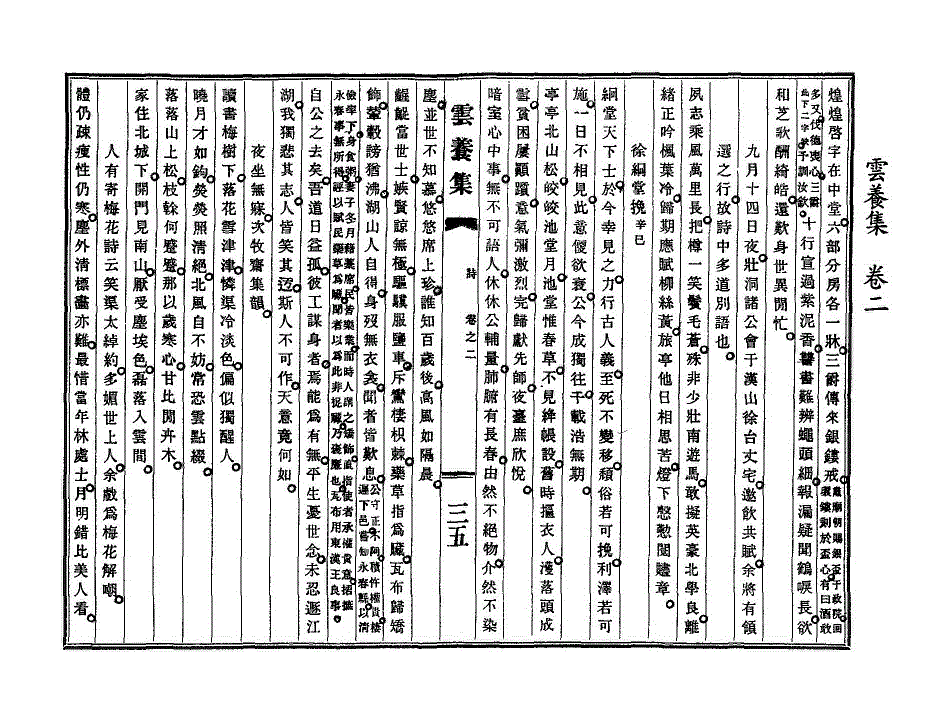 雲養集　卷二
煌煌啓字在中堂六部分房各一牀三爵傳來銀鏤戒
多又伐德喪心三爵
此下二字缺予訓汝欽十行宣過紫泥香讐書難辨蠅頭細報漏疑聞鶴唳長欲
和芝歌酬綺皓還歎身世異閒忙
九月十四日夜壯洞諸公會于漢山徐台丈宅邀飲共賦余將有領
選之行故詩中多道別語也
夙志乘風萬里長把樽一笑鬢毛蒼殊非少壯南遊馬敢擬英豪北學良離
緖正吟楓葉冷歸期應賦柳絲黃旅亭他日相思苦燈下慇懃閱贐章
徐絅堂挽辛巳
絅堂天下士於今幸見之力行古人義至死不變移頹俗若可挽利澤若可
施一日不相見此意便欲衰公今成獨往千載浩無期
亭亭北山松皎皎池堂月池堂惟春草不見絳帳設舊時摳衣人濩落頭成
雪貧困屢顚躓意氣彌激烈完歸獻先師夜臺庶欣悅
暗室心中事無不可語人休休公輔量肺腑有長春由然不絕物介然不染
雲養集
詩
卷之二
三五
塵並世不知慕悠悠席上珍誰知百歲後高風如隔晨
齷齪當世士嫉賢諒無極驅驥服鹽車斥鸞棲枳棘藥草指爲臟瓦布歸矯
飾轝轂謗猶沸湖山人自得身歿無衣衾聞者皆歎息
自公之去矣吾道日益孤彼工謀身者焉能爲有無平生憂世念未忍遯江
湖我獨悲其志人皆笑其迂斯人不可作天意竟何如
夜坐無寐次牧齋集韻
讀書梅樹下落花雲津津憐渠冷淡色偏似獨醒人
曉月才如鉤熒熒照淸絕北風自不妨常恐雲點綴
落落山上松枝榦何蹙蹙那以歲寒心甘比閒卉木
家住北城下開門見南山厭受塵埃色磊落入雲間
人有寄梅花詩云笑渠太綽約多媚世上人余戲爲梅花解嘲
體仍疎瘦性仍寒塵外淸標畵亦難最惜當年林處士月明錯比美人看